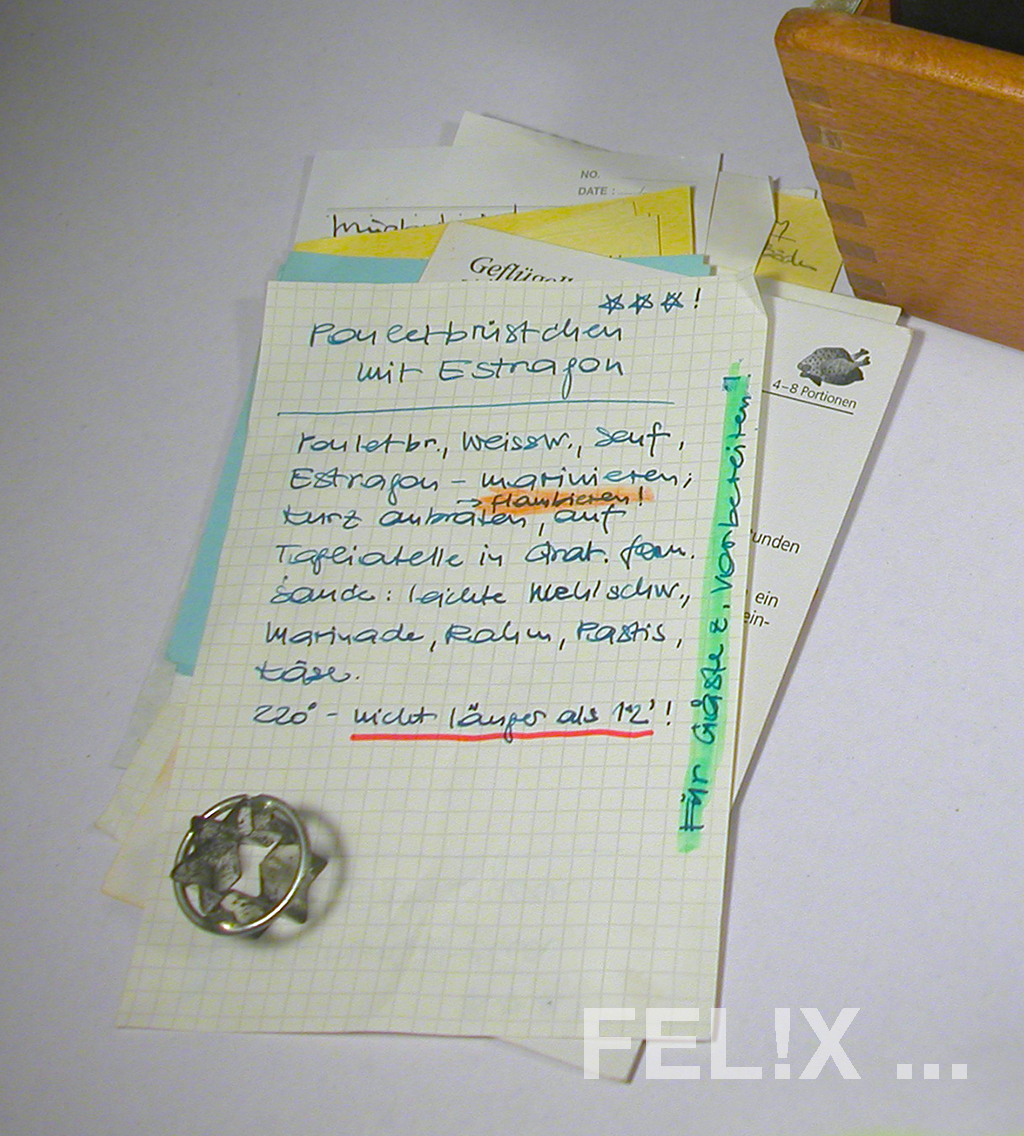 NO.
DATE :
Geflügel
***!
Pouletbrüstchen
mit Estragon
Pouletbr., Weissw., Senf,
Estragon - marinieren;
→ flambieren!
kurz anbraten, auf
Tagliatelle in Grat. form.
Sauce: leichte Mehlschw.,
Marinade, Rahm, Pastis,
Käse.
220° - nicht länger als 12'!
Für Gäste z. Vorbereiten!
4–8 Portionen
unden
ein
ein-
FEL!X ...